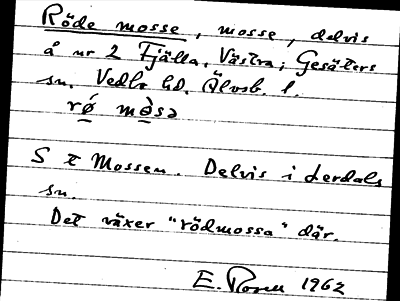 Röde mosse, mosse, delvis
å nr 2 Fjälla, Västra; Gesäters
sn. Vedbo hd. Älvsb. l.
rǿ mòsə
S t Mossen. Delvis i Lerdals
sn.
Det växer "rödmossa" där.
E. Rosell 1962